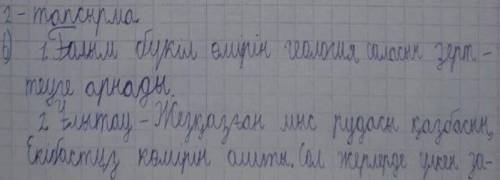 2-тапсырма
б) 1 Ғалым бүкіл өмірін геология саласын зерт-
теуге арнады.
2 Ұлытау - Жезқазған мыс рудасы қазбасын,
Екібастұз көмірін ашты. Сол жерлерде үлкен за-